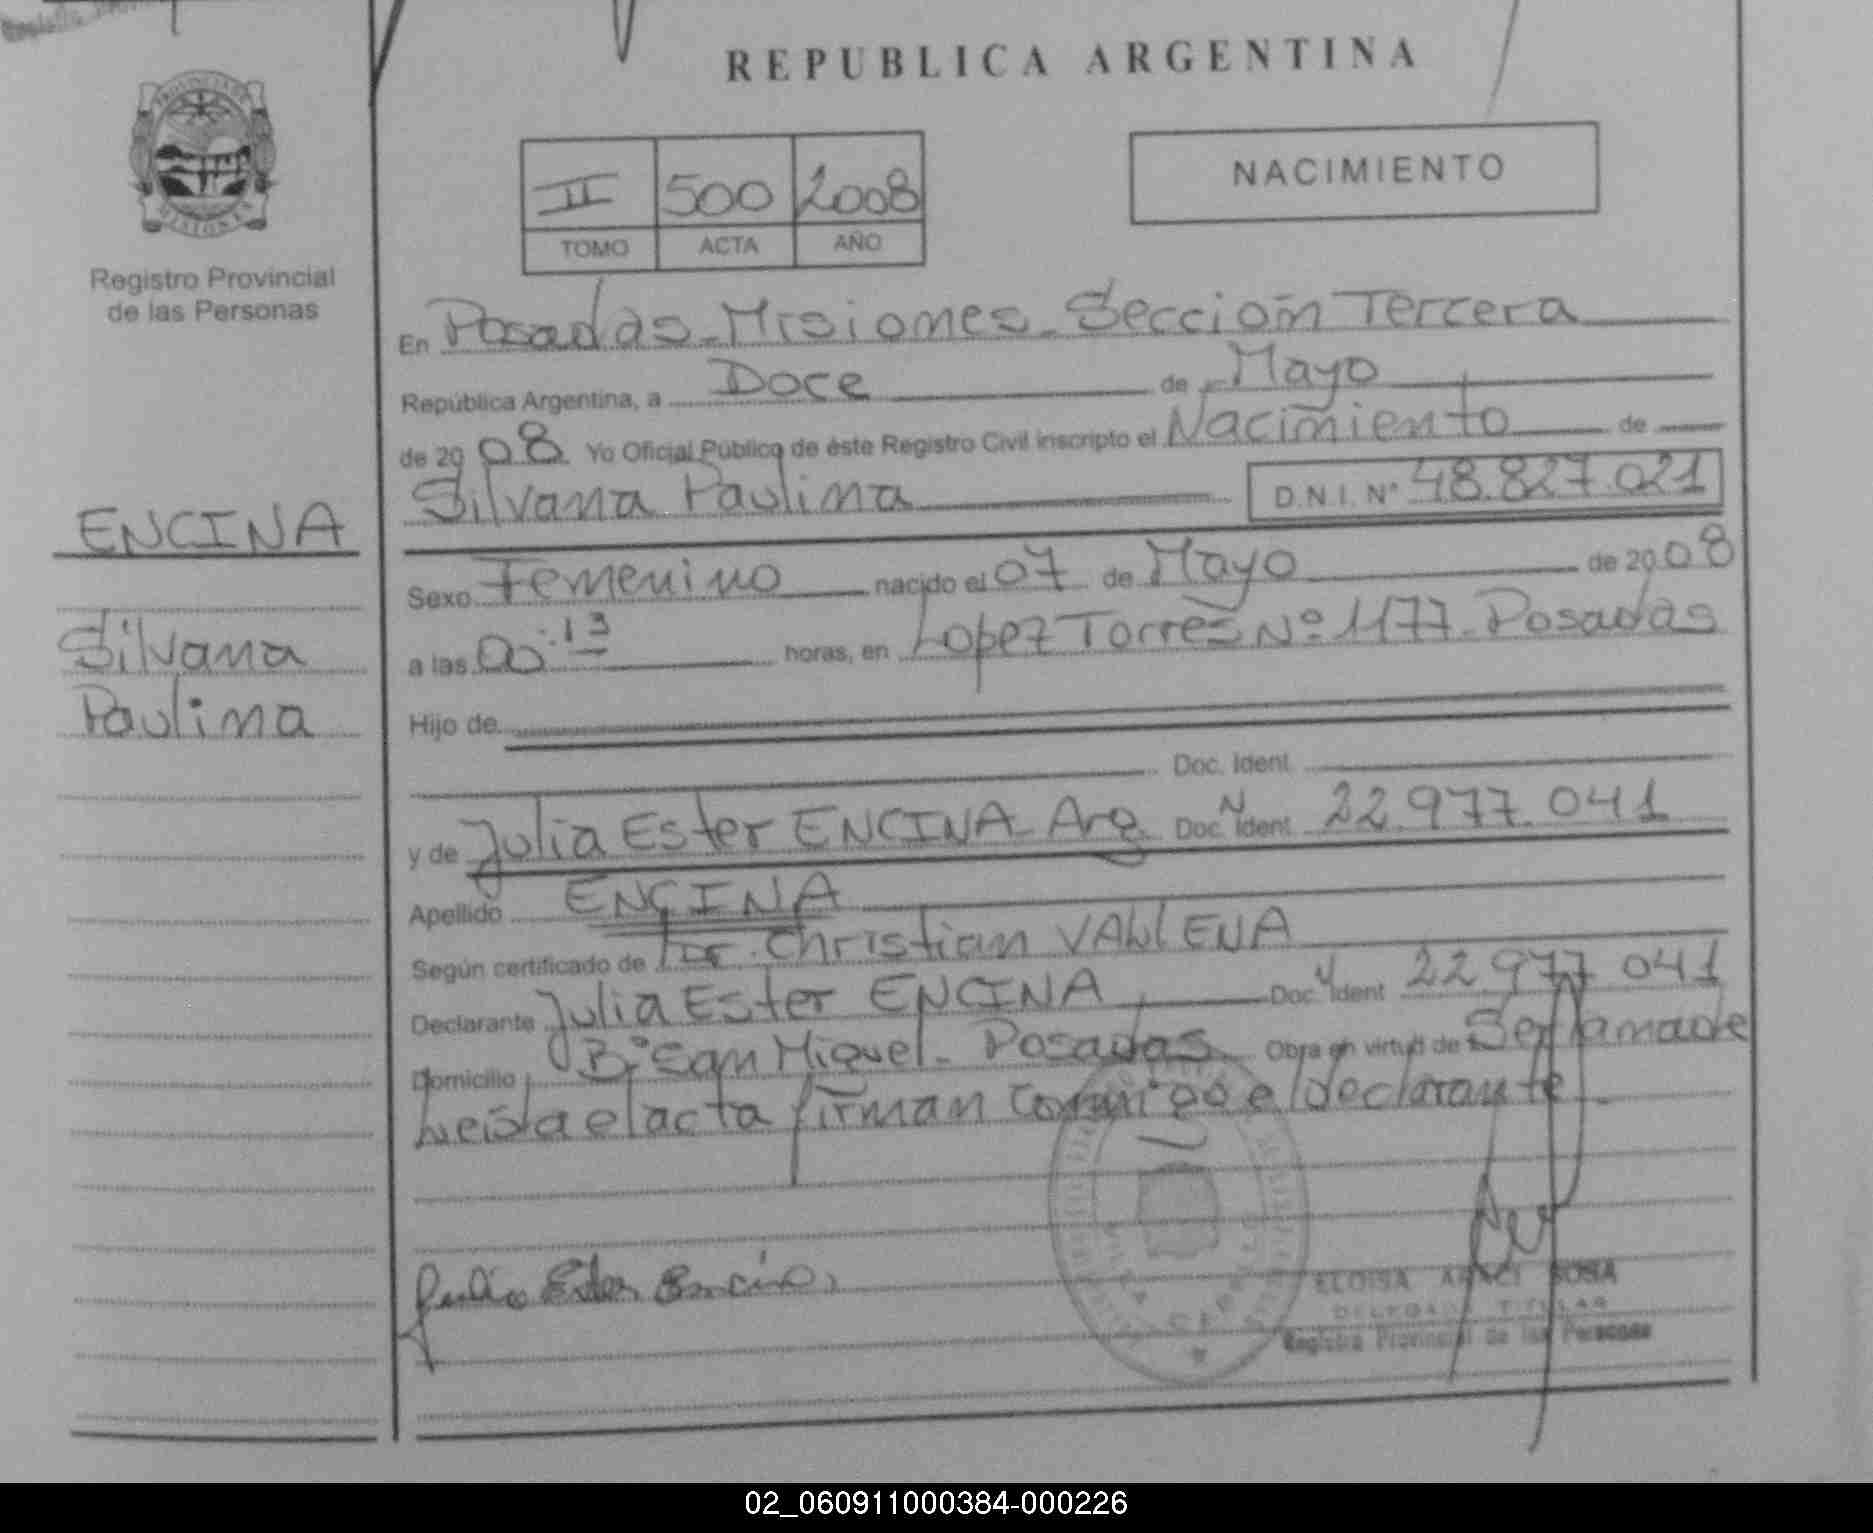 REPUBLICA ARGENTINA
NACIMIENTO
II 500 2008
TOMO ACTA AÑO
Registro Provincial
de las Personas
En Posadas - Misiones - Sección Tercera
República Argentina, a Doce de Mayo
de 2008 Yo Oficial Público de éste Registro Civil inscripto el Nacimiento de
Silvana Paulina D.N.I. Nº 48.827.021
ENCINA
Silvana
Paulina
Sexo Femenino nacido el 07 de Mayo de 2008
a las 00:13 horas, en Lopez Torres Nº 1177 - Posadas
Hijo de
Doc. Ident
y de Julia Ester ENCINA - Arg. Doc. Ident 22.977.041
Apellido ENCINA
Según certificado de Dr. Christian
Declarante Julia Ester ENCINA Doc. Ident 22.977.041
Domicilio Bº San Miguel - Posadas Obra en virtud de Ser la madre
Leida el acta firman conmigo el declarante
Julia Ester Encina
ELOISA ARACI SOSA
DELEGADA TITULAR
Registro Provincial de las Personas
02_060911000384-000226